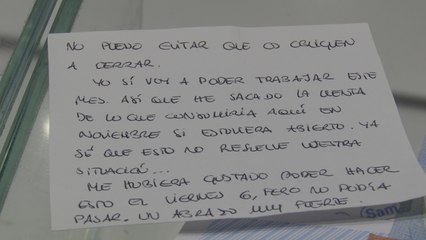 NO PUEDO EVITAR QUE OS OBLIGUEN
A CERRAR.
YO SÍ VOY A PODER TRABAJAR ESTE
MES. ASÍ QUE HE SACADO LA CUENTA
DE LO QUE CONSUMIRÍA AQUÍ EN
NOVIEMBRE SI ESTUVIERA ABIERTO. YA
SÉ QUE ESTO NO RESUELVE VUESTRA
SITUACIÓN...
ME HUBIERA GUSTADO PODER HACER
ESTO EL VIERNES 6, PERO NO PODÍA
PASAR. UN ABRAZO MUY FUERTE.
Sam